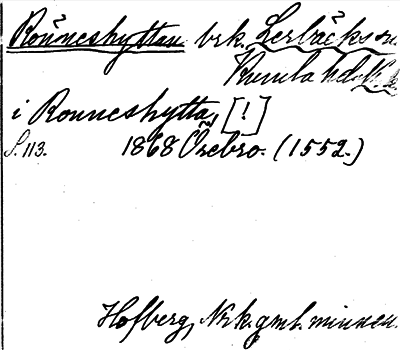 Rönneshyttan brk. Lerbäcks sn.
Kumla hd
i Ronneshytta, [!]
S. 113. 1868 Örebro. (1552.)
Hofberg, Nrk. gml. minnen.